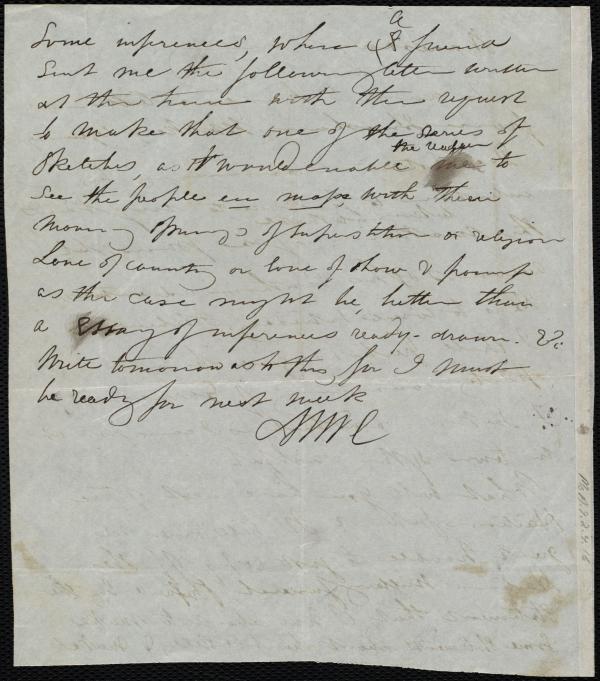 a
Some inferences, where & friend
Sent me the following letter written
at the time with the request
to make that one of the series of
the reader
Sketches, as it would enable to
see the people en mass, with their
moving springs of superstition or religion
Love of country or love of show & pomp
as the case might be, better than
a essay of inferences ready-drawn. &c
Write tomorrow as to this, for I must
be ready for next week